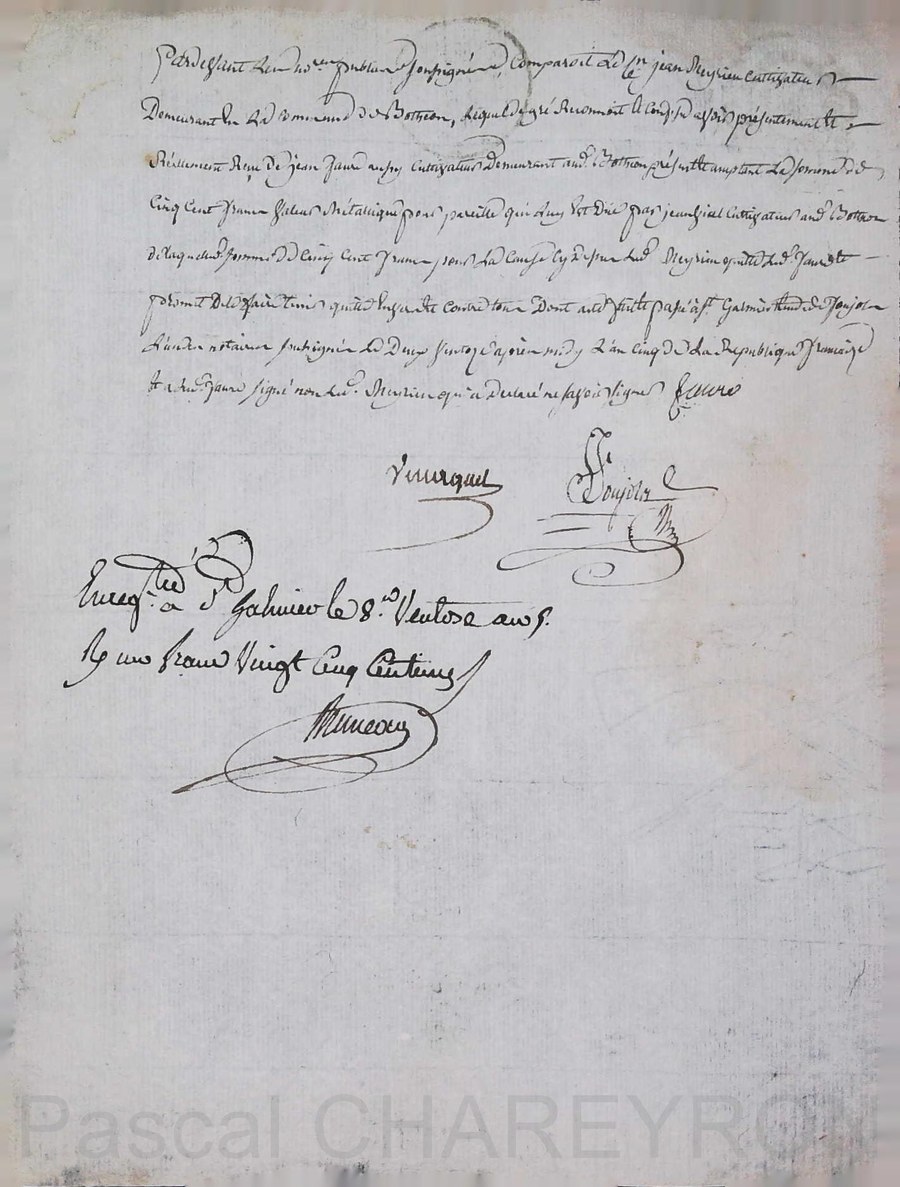 Pardevant Les no.res publics soussignés, Comparoit Le c.en jean Meyrieu Cultivateur
Demeurant En La commune de Botheon, lequel de gré Reconnoit Et Confesse avoir présentement Et
Réellement Reçu De jean Faure aussy Cultivateur Demeurant aud.t Botheon présent Et acceptant La somme de
Cinq Cent francs Valeur Métallique pour pareille qui luy Est Due par jean Cultivateur aud.t Botheon
De laquelle somme De Cinq Cent francs pour La Cause Meyrieu quitte Led.t Faure Et
promet De Le faire tenir quitte Envers Et Contre tous Dont acte fait Et passé à S.t Galmier Etude De Poujol
L'un des notaires soussignés Le Deux Ventose après midy L'an Cinq De La République françoise
Et a Led.t Faure signé non Led.t Meyrieu qui a Déclaré ne savoir signer Faure
Poujol
Enreg.tré à S.t Galmier le 8 Ventose an 5.
R un franc Vingt Cinq Centimes
Pascal CHAREYRON